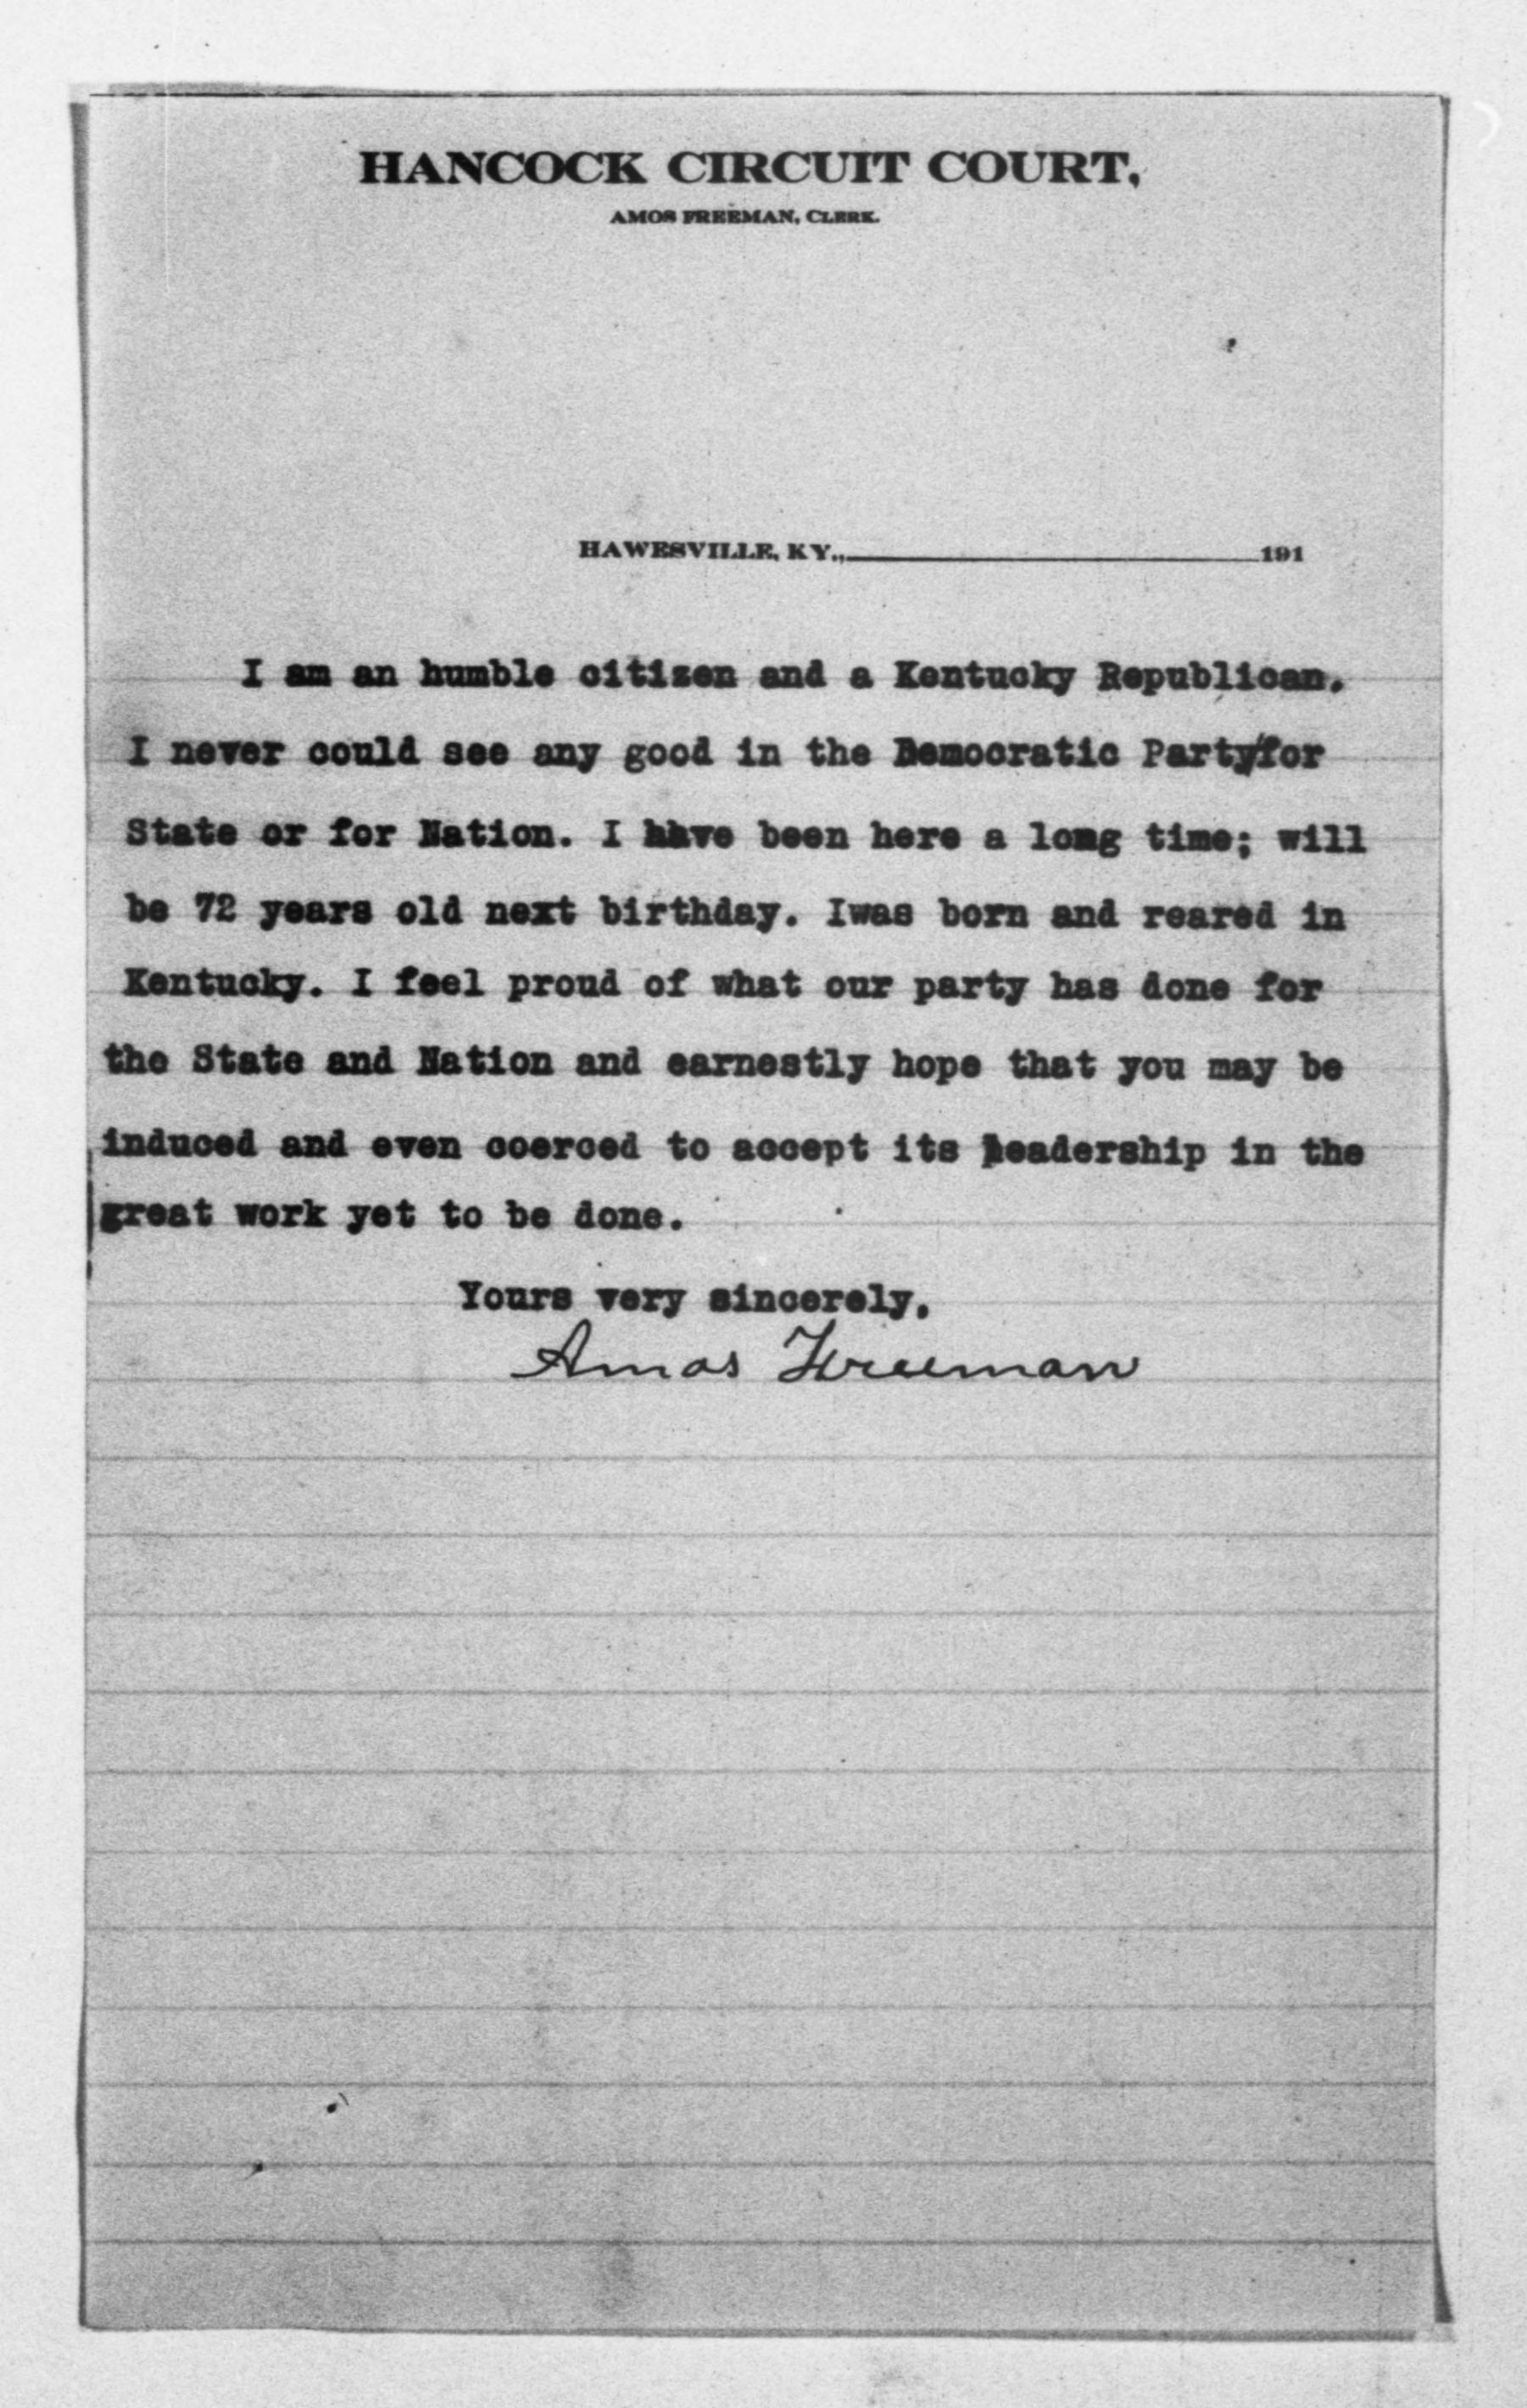 HANCOCK CIRCUIT COURT,
AMOS FREEMAN, CLERK.
HAWESVILLE, KY., 191
I am an humble citizen and a Kentucky Republican.
I never could see any good in the Democratic Party/for
State or for Nation. I have been here a long time; will
be 72 years old next birthday. Iwas born and reared in
Kentucky. I feel proud of what our party has done for
the State and Nation and earnestly hope that you may be
induced and even coerced to accept its leadership in the
great work yet to be done.
Yours very sincerely,
Amos Freeman